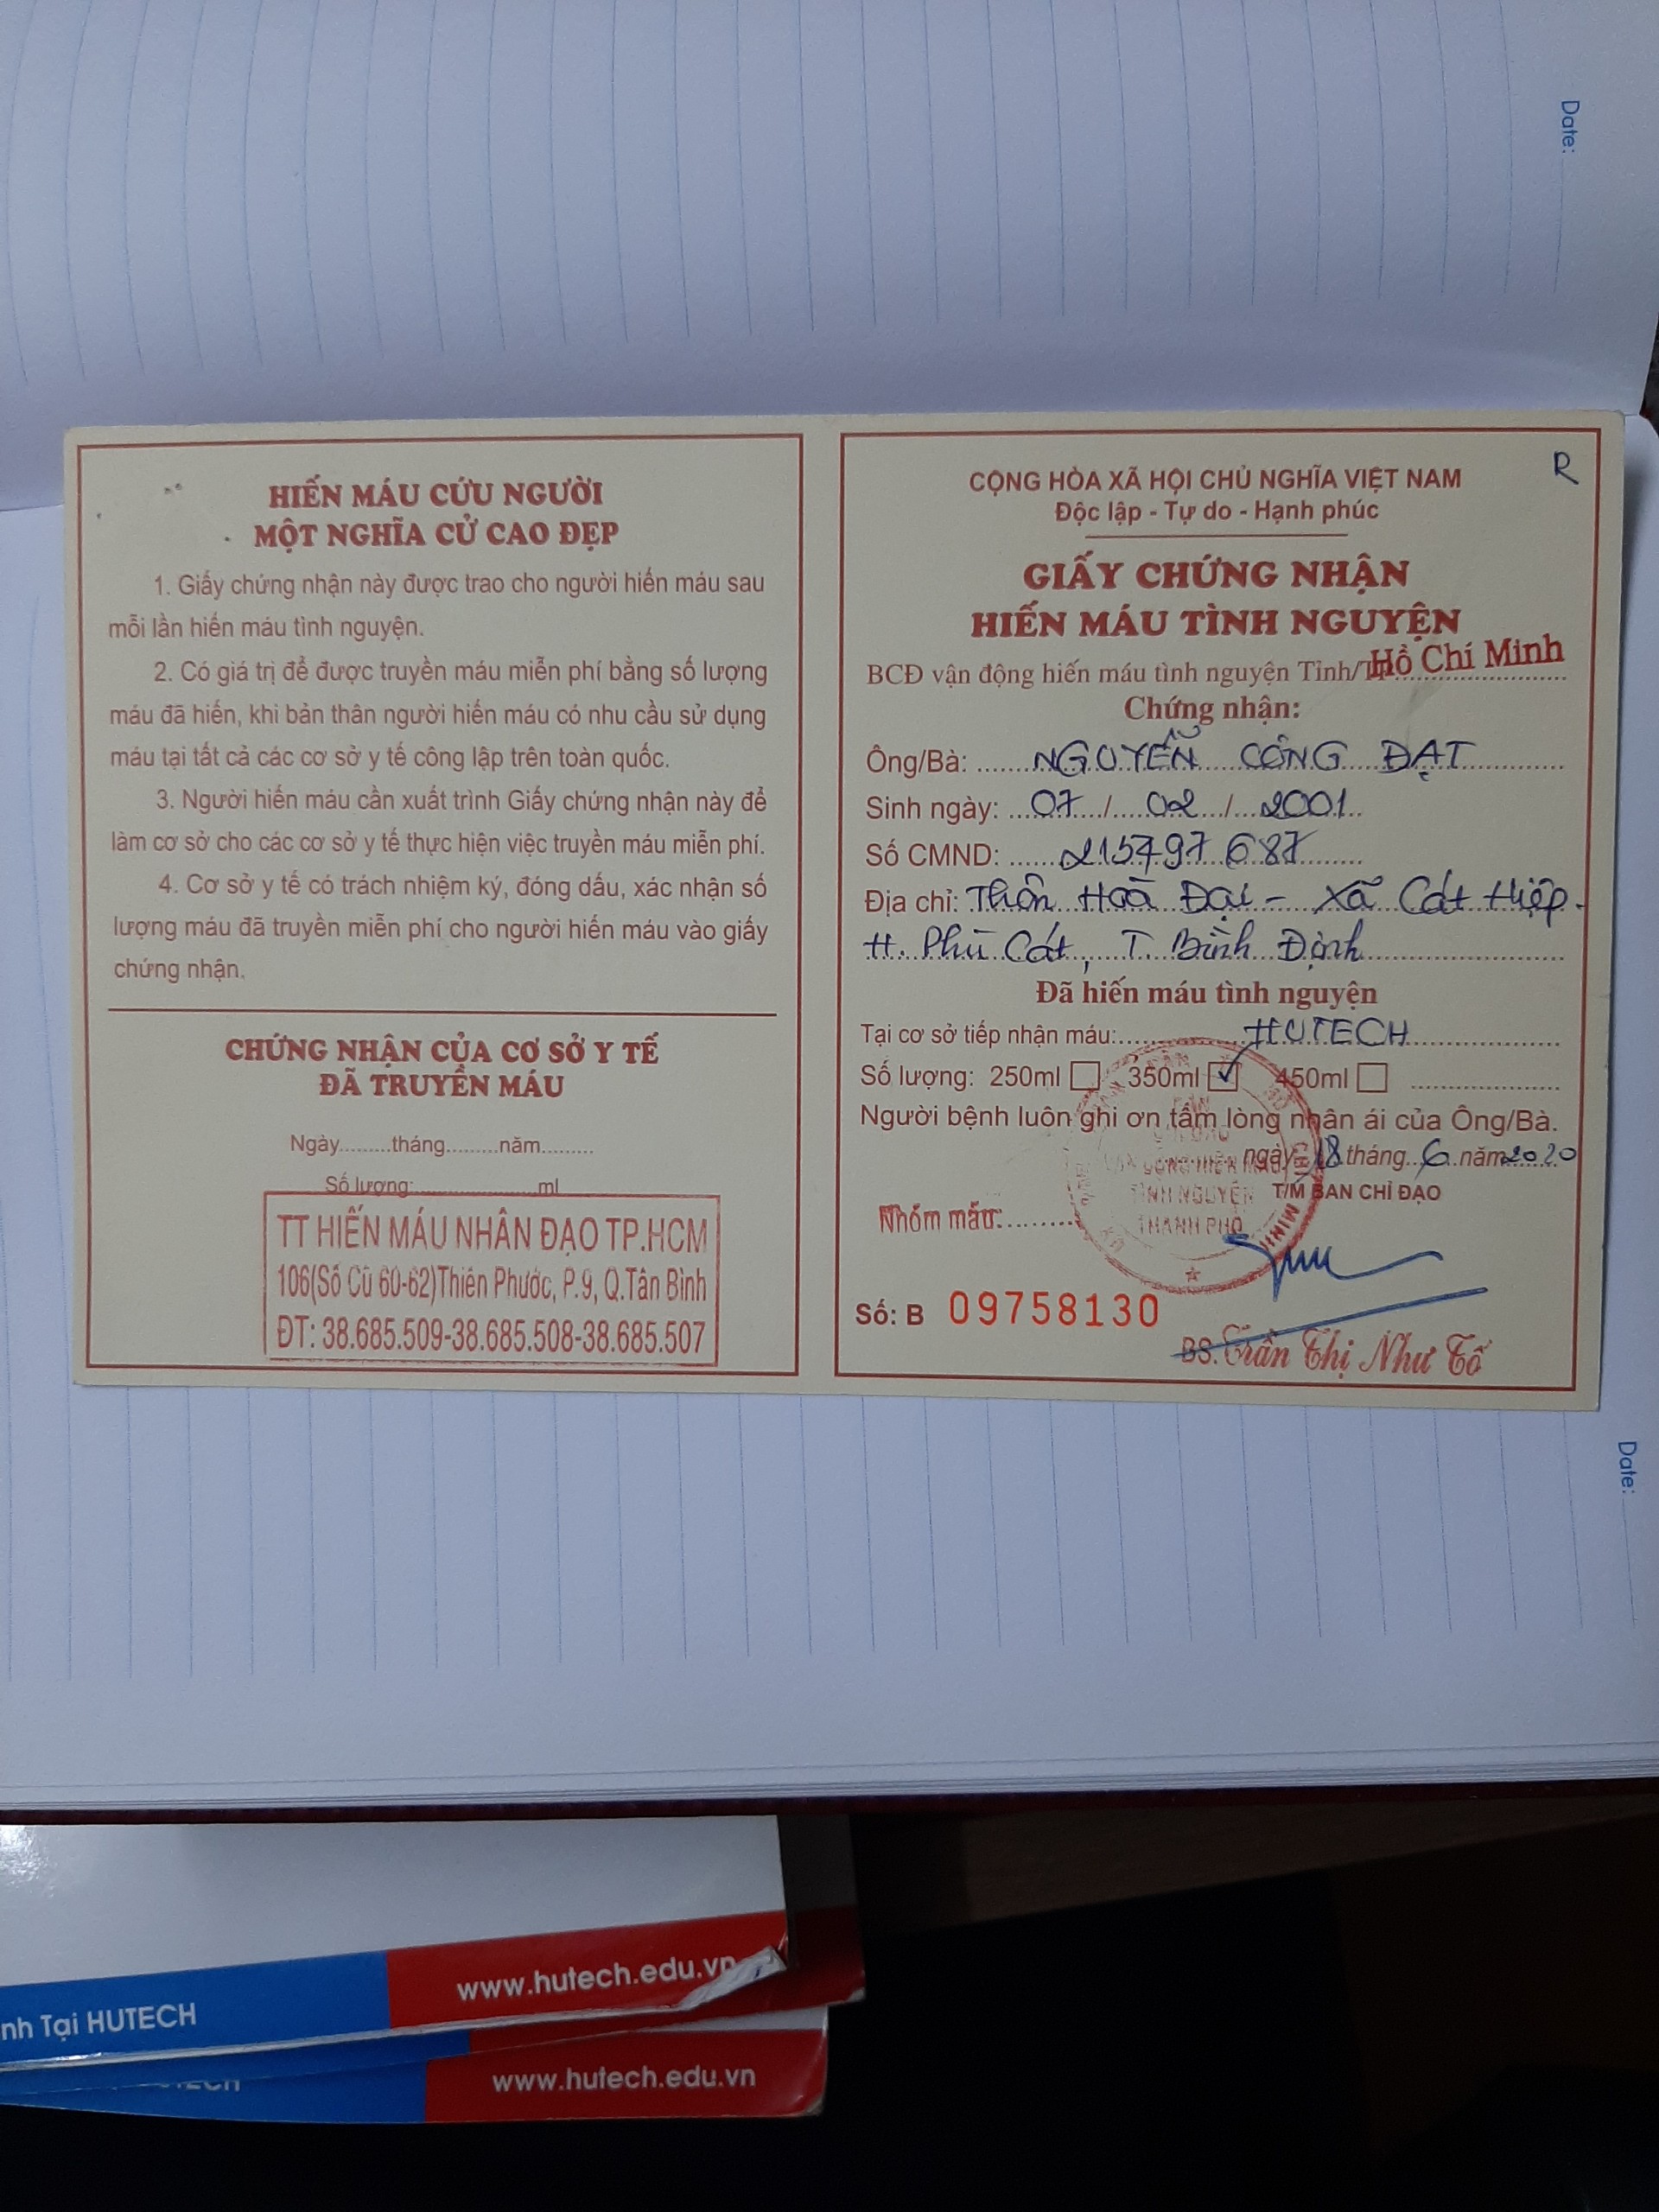 Date:
HIẾN MÁU CỨU NGƯỜI
MỘT NGHĨA CỬ CAO ĐẸP
1. Giấy chứng nhận này được trao cho người hiến máu sau
mỗi lần hiến máu tình nguyện.
2. Có giá trị để được truyền máu miễn phí bằng số lượng
máu đã hiến, khi bản thân người hiến máu có nhu cầu sử dụng
máu tại tất cả các cơ sở y tế công lập trên toàn quốc.
3. Người hiến máu cần xuất trình Giấy chứng nhận này để
làm cơ sở cho các cơ sở y tế thực hiện việc truyền máu miễn phí.
4. Cơ sở y tế có trách nhiệm ký, đóng dấu, xác nhận số
lượng máu đã truyền miễn phí cho người hiến máu vào giấy
chứng nhận.
CHỨNG NHẬN CỦA CƠ SỞ Y TẾ
ĐÃ TRUYỀN MÁU
Ngày.........tháng.........năm.........
Số lượng:.....................ml
TT HIẾN MÁU NHÂN ĐẠO TP.HCM
106(Số Cũ 60-62)Thiên Phước, P.9, Q.Tân Bình
ĐT: 38.685.509-38.685.508-38.685.507
R
CỘNG HÒA XÃ HỘI CHỦ NGHĨA VIỆT NAM
Độc lập - Tự do - Hạnh phúc
GIẤY CHỨNG NHẬN
HIẾN MÁU TÌNH NGUYỆN
BCĐ vận động hiến máu tình nguyện Tỉnh/TP Hồ Chí Minh
Chứng nhận:
Ông/Bà: NGUYỄN CÔNG ĐẠT
Sinh ngày: 07 / 02 / 2001
Số CMND: 215497687
Địa chỉ: Thôn Hoà Đại - Xã Cát Hiệp -
H. Phù Cát, T. Bình Định
Đã hiến máu tình nguyện
Tại cơ sở tiếp nhận máu: HUTECH
Số lượng: 250ml 350ml ✓ 450ml
Người bệnh luôn ghi ơn tấm lòng nhân ái của Ông/Bà.
ngày 18 tháng 6 năm 2020
T/M BAN CHỈ ĐẠO
VẬN ĐỘNG HIẾN MÁU
TÌNH NGUYỆN
THÀNH PHỐ
Nhóm máu:.........
Số: B 09758130
BS. Trần Thị Như Tố
Date:
www.hutech.edu.vn
nh Tại HUTECH
www.hutech.edu.vn